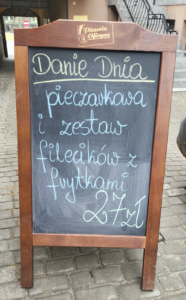 Pizzeria
Danie Dnia
pieczarkowa
i zestaw
filecików z
frytkami
27zł